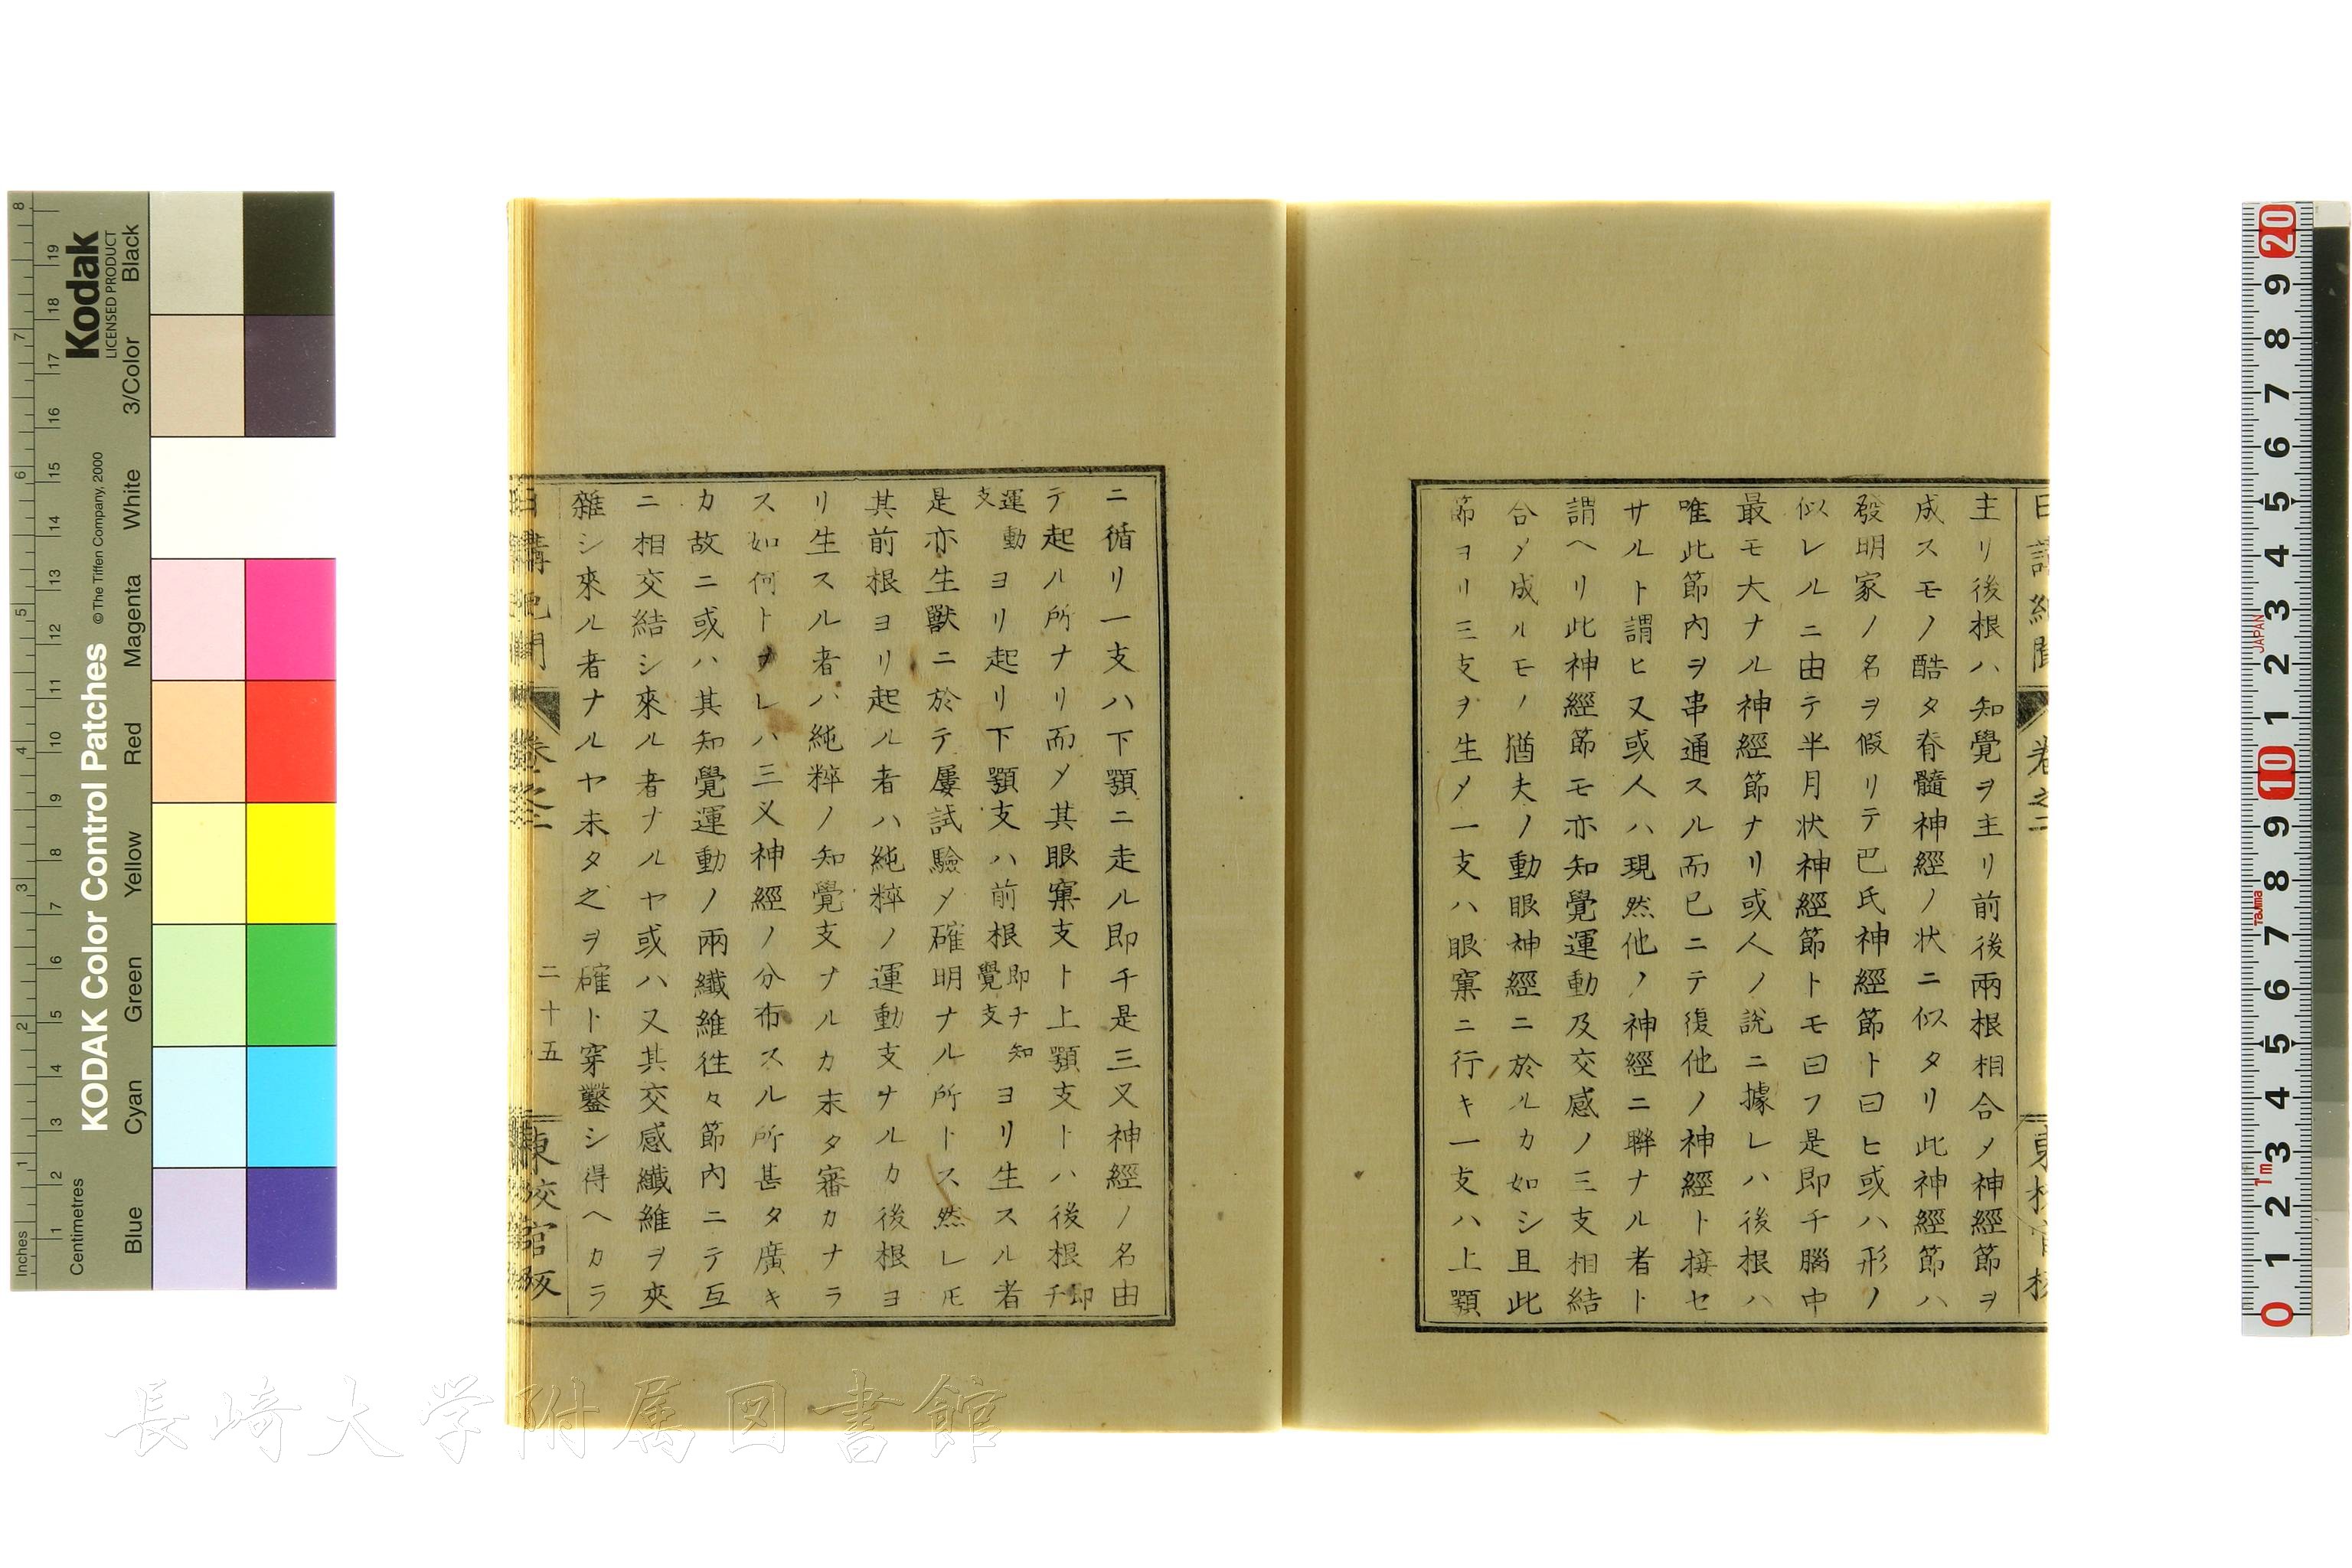 主リ後根ハ知覺ヲ主リ前後兩根相合〆神經節ヲ
成スモノ酷タ脊髓神經ノ状ニ似タリ此神經節ハ
發明家ノ名ヲ假リテ巴氏神經節ト曰ヒ或ハ形ノ
似レルニ由テ半月状神經節トモ曰フ是即チ腦中
最モ大ナル神經節ナリ或人ノ説ニ據レハ後根ハ
唯此節内ヲ串通スル而已ニテ復他ノ神經ト接セ
サルト謂ヒ又或人ハ現然他ノ神經ニ聯ナル者ト
謂ヘリ此神經節モ亦知覺運動及交感ノ三支相結
合〆成ルモノ猶夫ノ動眼神經ニ於ルカ如シ且此
節ヨリ三支ヲ生〆一支ハ眼窠ニ行キ一支ハ上顎
ニ循リ一支ハ下顎ニ走ル即チ是三叉神經ノ名由
テ起ル所ナリ而〆其眼窠支ト上顎支トハ後根即チ
運動支ヨリ起リ下顎支ハ前根即チ知覺支ヨリ生スル者
是亦生獸ニ於テ屢試驗〆確明ナル所トス然レ𪜈
其前根ヨリ起ル者ハ純粹ノ運動支ナルカ後根ヨ
リ生スル者ハ純粹ノ知覺支ナルカ末タ審カナラ
ス如何トナレハ三叉神經ノ分布スル所甚タ廣キ
カ故ニ或ハ其知覺運動ノ兩纖維徃々節内ニテ互
ニ相交結シ來ル者ナルヤ或ハ又其交感纖維ヲ夾
雜シ來ル者ナルヤ未タ之ヲ確ト穿鑿シ得ヘカラ
二十五
KODAK Color Control Patches
© The Tiffen Company, 2000
Kodak
LICENSED PRODUCT
Inches
Centimetres
Blue
Cyan
Green
Yellow
Red
Magenta
White
3/Color
Black
長崎大学附属図書館
JAPAN
Tajima
1m